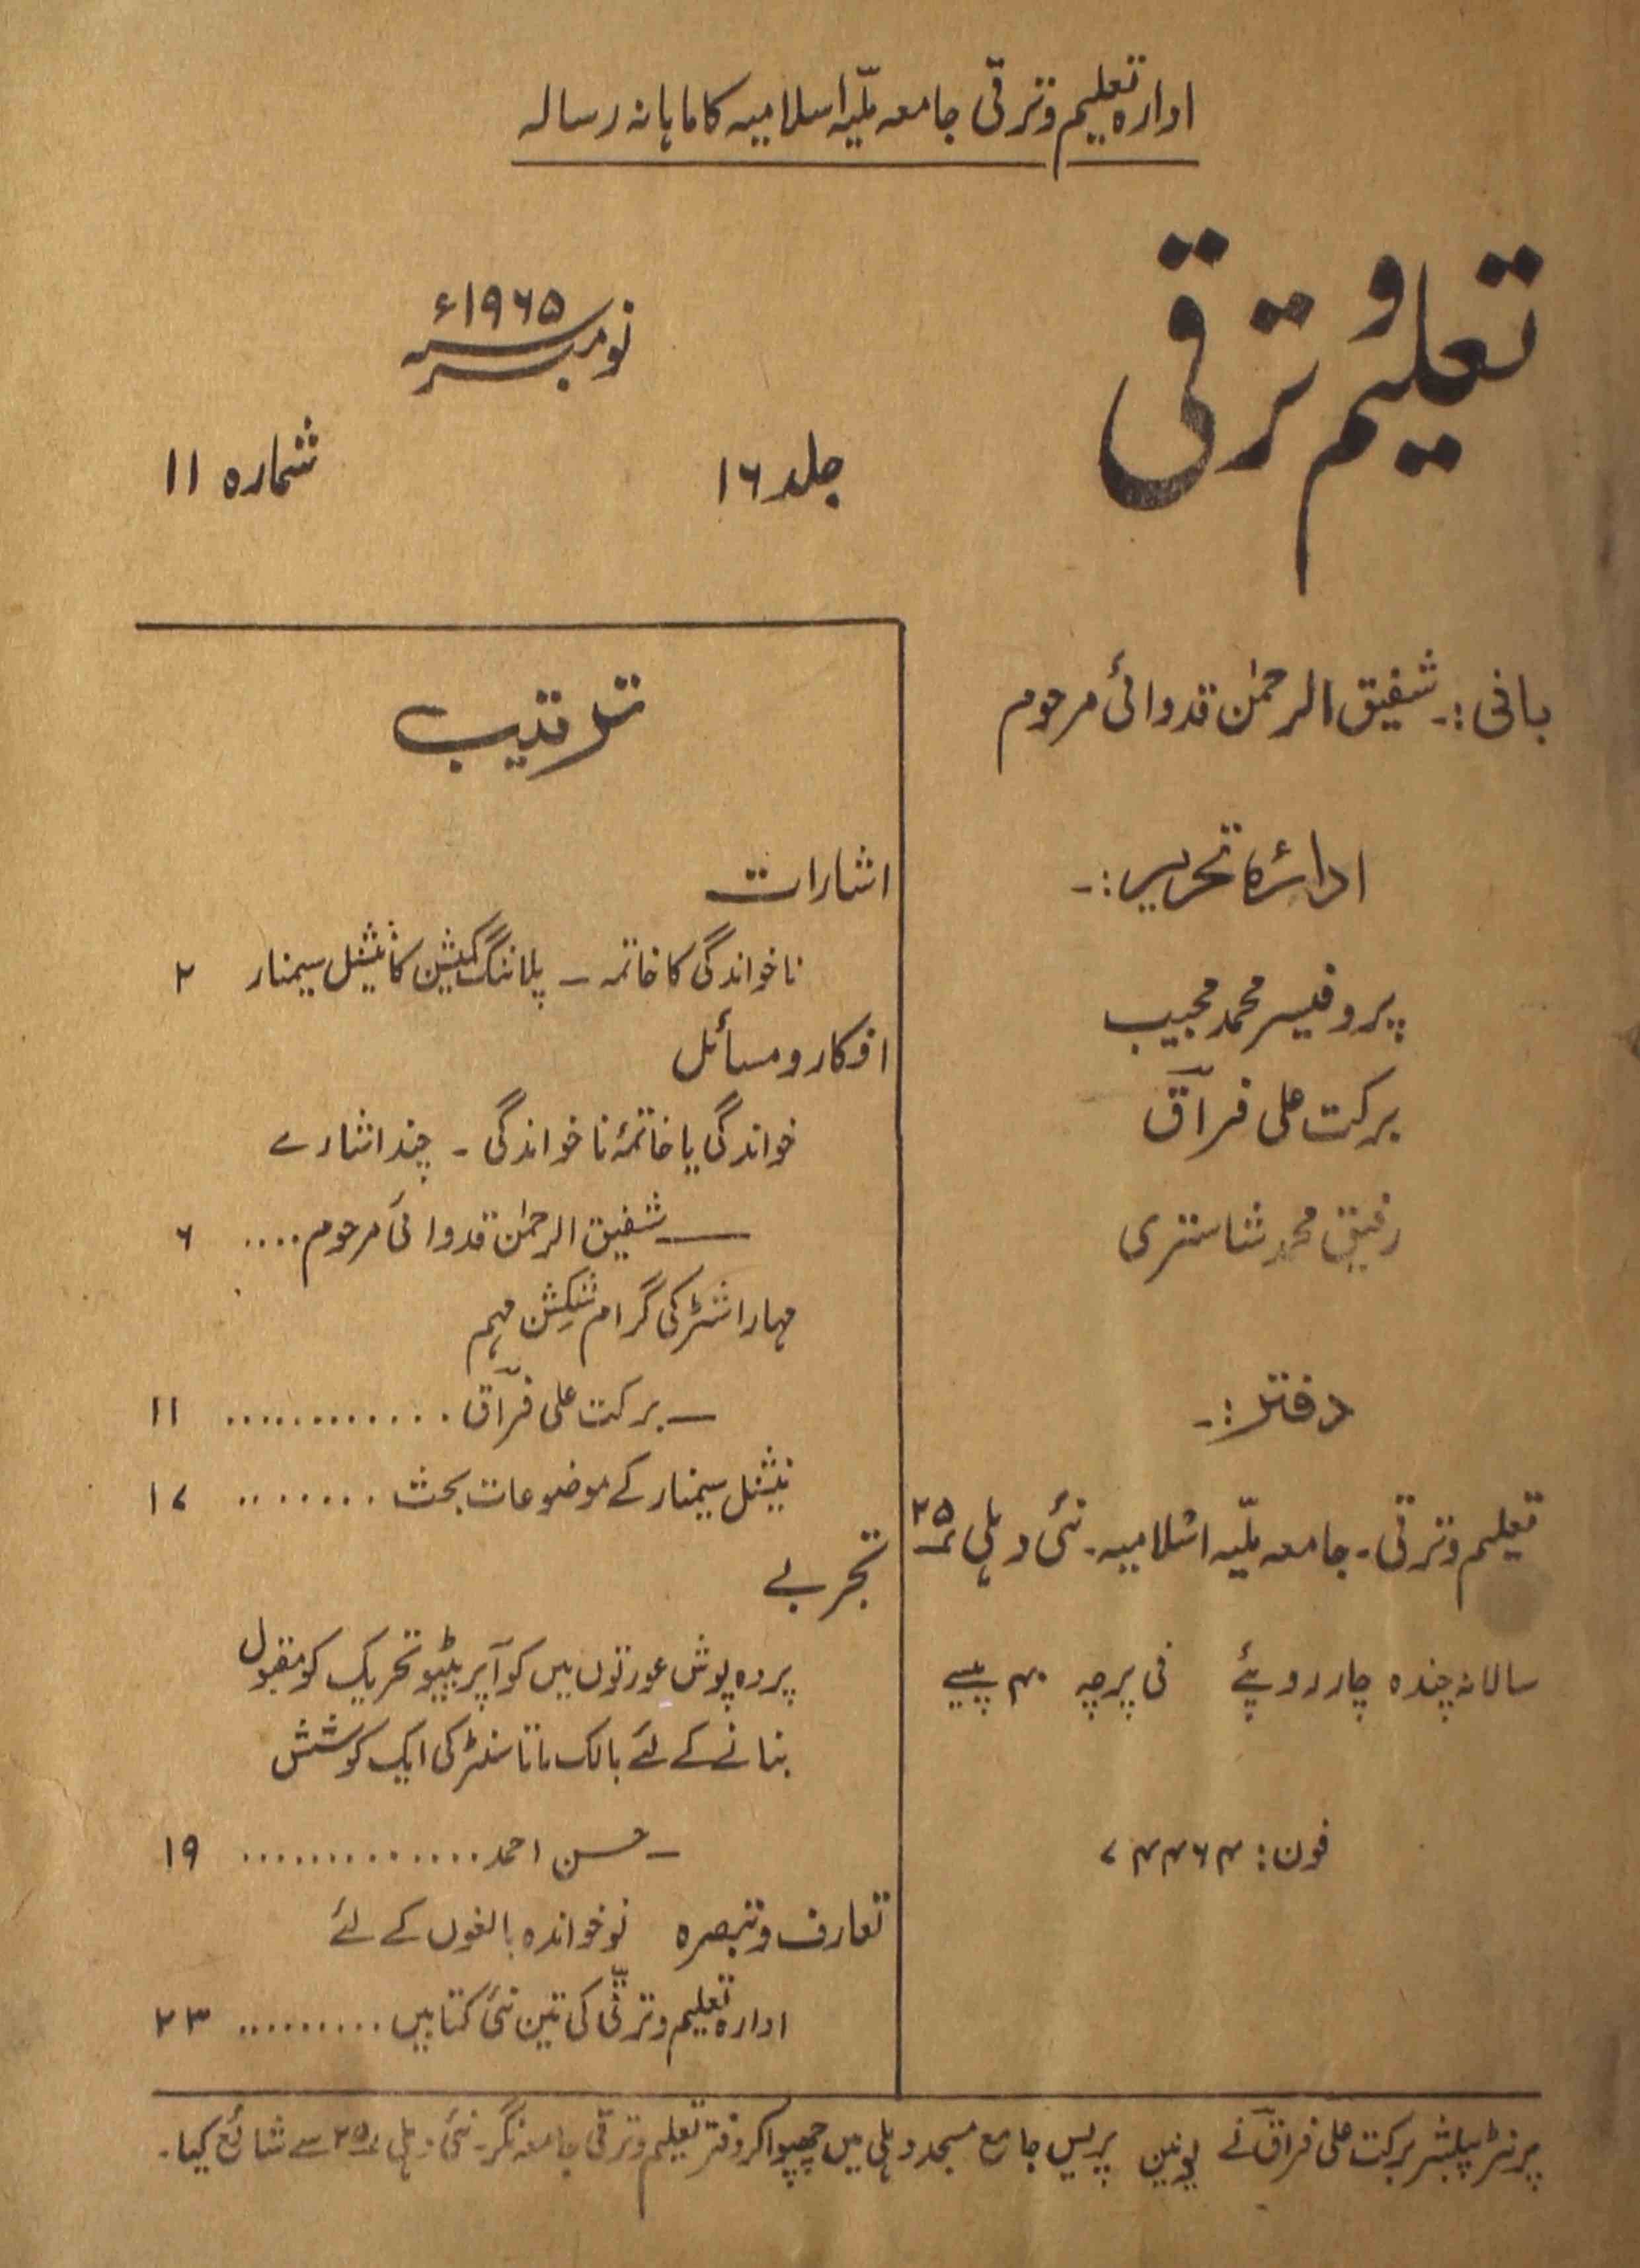 ادارہ تعلیم و ترقی جامعہ ملّیہ اسلامیہ کا ماہانہ رسالہ
تعلیم و ترقی
نومبر ۱۹۶۵ء
جلد ۱۶
شمارہ ۱۱
بانی :۔ شفیق الرحمٰن قدوائی مرحوم
ادارۂ تحریر :۔
پروفیسر محمد مجیب
برکت علی فراقؔ
رفیق محمد شاستری
دفتر :۔
تعلیم و ترقی ۔ جامعہ ملّیہ اسلامیہ ۔ نئی دہلی ۲۵
سالانہ چندہ چار روپئے فی پرچہ ۴۰ پیسے
فون : ۷۴۴۶۴
ترتیب
اشارات
ناخواندگی کا خاتمہ ۔ پلاننگ کمیشن کا نیشنل سیمنار ۲
افکار و مسائل
خواندگی یا خاتمۂ ناخواندگی ۔ چند اشارے
— شفیق الرحمٰن قدوائی مرحوم .... ۶
مہاراشٹر کی گرام شکشن مہم
— برکت علی فراقؔ ............ ۱۱
نیشنل سیمنار کے موضوعات بحث ........ ۱۷
تجربے
پردہ پوش عورتوں میں کوآپریٹیو تحریک کو مقبول
بنانے کے لئے بالک ماتا سنٹر کی ایک کوشش
— حسن احمد .............. ۱۹
تعارف و تبصرہ نوخواندہ بالغوں کے لئے
ادارہ تعلیم و ترقی کی تین نئی کتابیں ......... ۲۳
پرنٹر پبلشر برکت علی فراقؔ نے یونین پریس جامع مسجد دہلی میں چھپوا کر دفتر تعلیم و ترقی جامعہ نگر۔ نئی دہلی ۲۵ سے شائع کیا۔